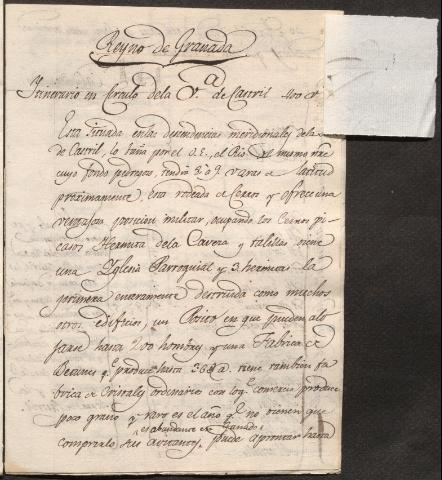 Reyno de Granada
Itinerario en Circulo de la V.a de Castril
Esta situada en las descendencias meridionales de la
de Castril, lo baña por el S.E., el Rio del mismo
cuyo fondo pedregoso, tendrá 8 o 9 varas de latitud
proximamente, esta rodeada de Cerros y ofrece una
ventajosa posicion militar, ocupando los Cerros pi-
casos Hermita de la Cavera y talillas tiene
una Yglesia Parroquial y 3 hermitas la
primera enteramente destruida como muchos
otros edificios, un Posito en que pueden alo
jarse hasta 200 hombres y una Fabrica de
qe produce hasta tiene tambien fa
brica de Cristales ordinarios con lo qe comercia produce
poco grano y raro es el año qe no tienen que
es abundante de Ganado
comprarlo sus avitantes, puede aprontar hasta